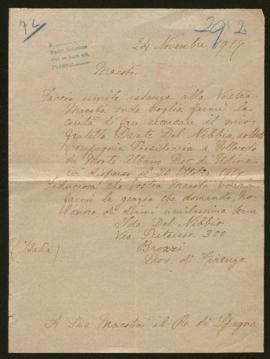 72
292
24 Novembre 1917
Maestà
Faccio umile istanza alla Vostra
Maestà onde voglia farmi la
carità di far ricercare il mio
fratello Dante Del Nebbia, soldato
Compagnia Presidiaria a
di Monte Albano Prov. di Udine
disperso il
Fiduciosa che Vostra Maestà vorrà
farmi la grazia che domando, ho
l'onore di dirmi umilissima serva
Ida Del Nebbia
Via Pistoiese 300
Brozzi
(Italia)
Prov. di Firenze
A Sua Maestà il Re di Spagna